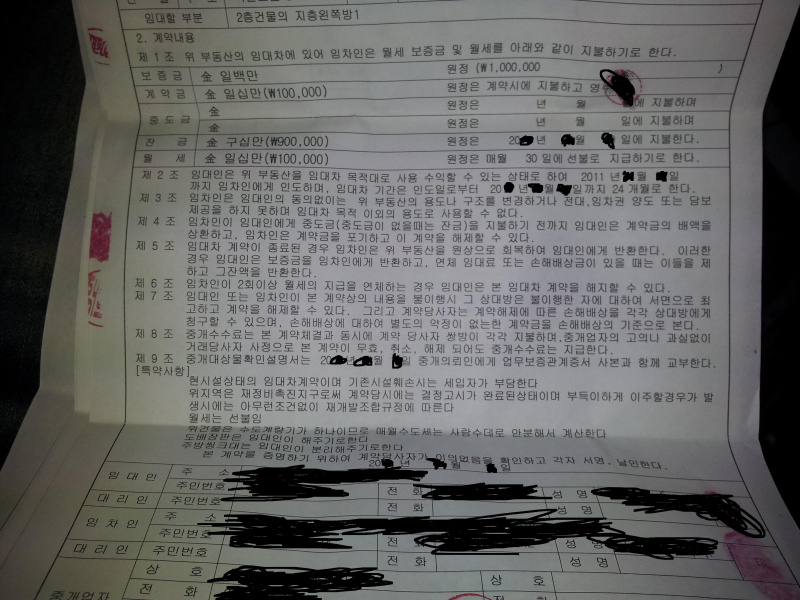 임대할 부분 2층건물의 지층왼쪽방1
2. 계약내용
제 1 조 위 부동산의 임대차에 있어 임차인은 월세 보증금 및 월세를 아래와 같이 지불하기로 한다.
보 증 금 金 일백만 원정 (₩1,000,000 )
계 약 금 金 일십만(₩100,000) 원정은 계약시에 지불하고
중 도 금 金 원정은 년 월 에 지불하며
金 원정은 년 월 일에 지불하며
잔 금 金 구십만(₩900,000) 원정은 20 년 월 일에 지불한다.
월 세 金 일십만(₩100,000) 원정은 매월 30 일에 선불로 지급하기로 한다.
제 2 조 임대인은 위 부동산을 임대차 목적대로 사용 수익할 수 있는 상태로 하여 2011 년 월 일
까지 임차인에게 인도하며, 임대차 기간은 인도일로부터 20 년 월 일까지 24 개월로 한다.
제 3 조 임차인은 임대인의 동의없이는 위 부동산의 용도나 구조를 변경하거나 전대,임차권 양도 또는 담보
제공을 하지 못하며 임대차 목적 이외의 용도로 사용할 수 없다.
제 4 조 임차인이 임대인에게 중도금(중도금이 없을때는 잔금)을 지불하기 전까지 임대인은 계약금의 배액을
상환하고, 임차인은 계약금을 포기하고 이 계약을 해제할 수 있다.
제 5 조 임대차 계약이 종료된 경우 임차인은 위 부동산을 원상으로 회복하여 임대인에게 반환한다. 이러한
경우 임대인은 보증금을 임차인에게 반환하고, 연체 임대료 또는 손해배상금이 있을 때는 이들을 제
하고 그잔액을 반환한다.
제 6 조 임차인이 2회이상 월세의 지급을 연체하는 경우 임대인은 본 임대차 계약을 해지할 수 있다.
제 7 조 임대인 또는 임차인이 본 계약상의 내용을 불이행시 그 상대방은 불이행한 자에 대하여 서면으로 최
고하고 계약을 해제할 수 있다. 그리고 계약당사자는 계약해제에 따른 손해배상을 각각 상대방에게
청구할 수 있으며, 손해배상에 대하여 별도의 약정이 없는한 계약금을 손해배상의 기준으로 본다.
제 8 조 중개수수료는 본 계약체결과 동시에 계약 당사자 쌍방이 각각 지불하며,중개업자의 고의나 과실없이
거래당사자 사정으로 본 계약이 무효, 취소, 해제 되어도 중개수수료는 지급한다.
제 9 조 중개대상물확인설명서는 2 중개의뢰인에게 업무보증관계증서 사본과 함께 교부한다.
[특약사항]
현시설상태의 임대차계약이며 기존시설훼손시는 세입자가 부담한다
위지역은 재정비촉진지구로써 계약당시에는 결정고시가 완료된상태이며 부득이하게 이주할경우가 발
생시에는 아무런조건없이 재개발조합규정에 따른다
월세는 선불임
위건물은 수도계량기가 하나이므로 매월수도세는 사람수데로 안분해서 계산한다
도배장판은 임대인이 해주기로한다
주방씽크대는 임대인이 분리해주기로한다
본 계약을 증명하기 위하여 계약당사자가 이의없음을 확인하고 각자 서명,날인한다.
20 년 월 일
임 대 인 주 소
주민번호 전 화 성 명
대 리 인 주민번호 전 화 성 명
임 차 인 주 소
주민번호 전 화 성 명
대 리 인 주민번호 전 화 성 명
중개업자 상 호 상 호
전 화 전 화